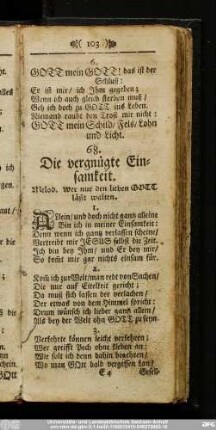 103
6.
GOTT mein GOTT! das ist der
Schluß:
Er ist mir/ ich Ihm gegeben;
Wenn ich auch gleich sterben muß/
Geh ich doch zu GOTT ins Leben.
Niemand raubt den Trost mir nicht:
GOTT mein Schild/ Fels/ Lohn
und Licht.
68.
Die vergnügte Ein-
samkeit.
Melod. Wer nur den lieben GOTT
läßt walten.
1.
Allein/ und doch nicht ganz alleine
Bin ich in meiner Einsamkeit:
Denn wenn ich ganz verlassen scheine/
Vertreibt mir JESUS selbst die Zeit.
Ich bin bey Ihm/ und Er bey mir/
So kömt mir gar nichts einsam für.
2.
Kom̃ ich zur Welt/ man redt von Sachen/
Die nur auf Eitelkeit gericht;
Da muß sich lassen der verlachen/
Der etwas von dem Himmel spricht:
Drum wünsch ich lieber ganz allein/
Als bey der Welt ohn GOTT zu seyn.
3.
Verkehrte können leicht verkehren;
Wer greifft Pech ohne kleben an:
Wie solt ich denn dahin begehren/
Wo man GOtt bald vergessen kan?
E 4
Gesell-